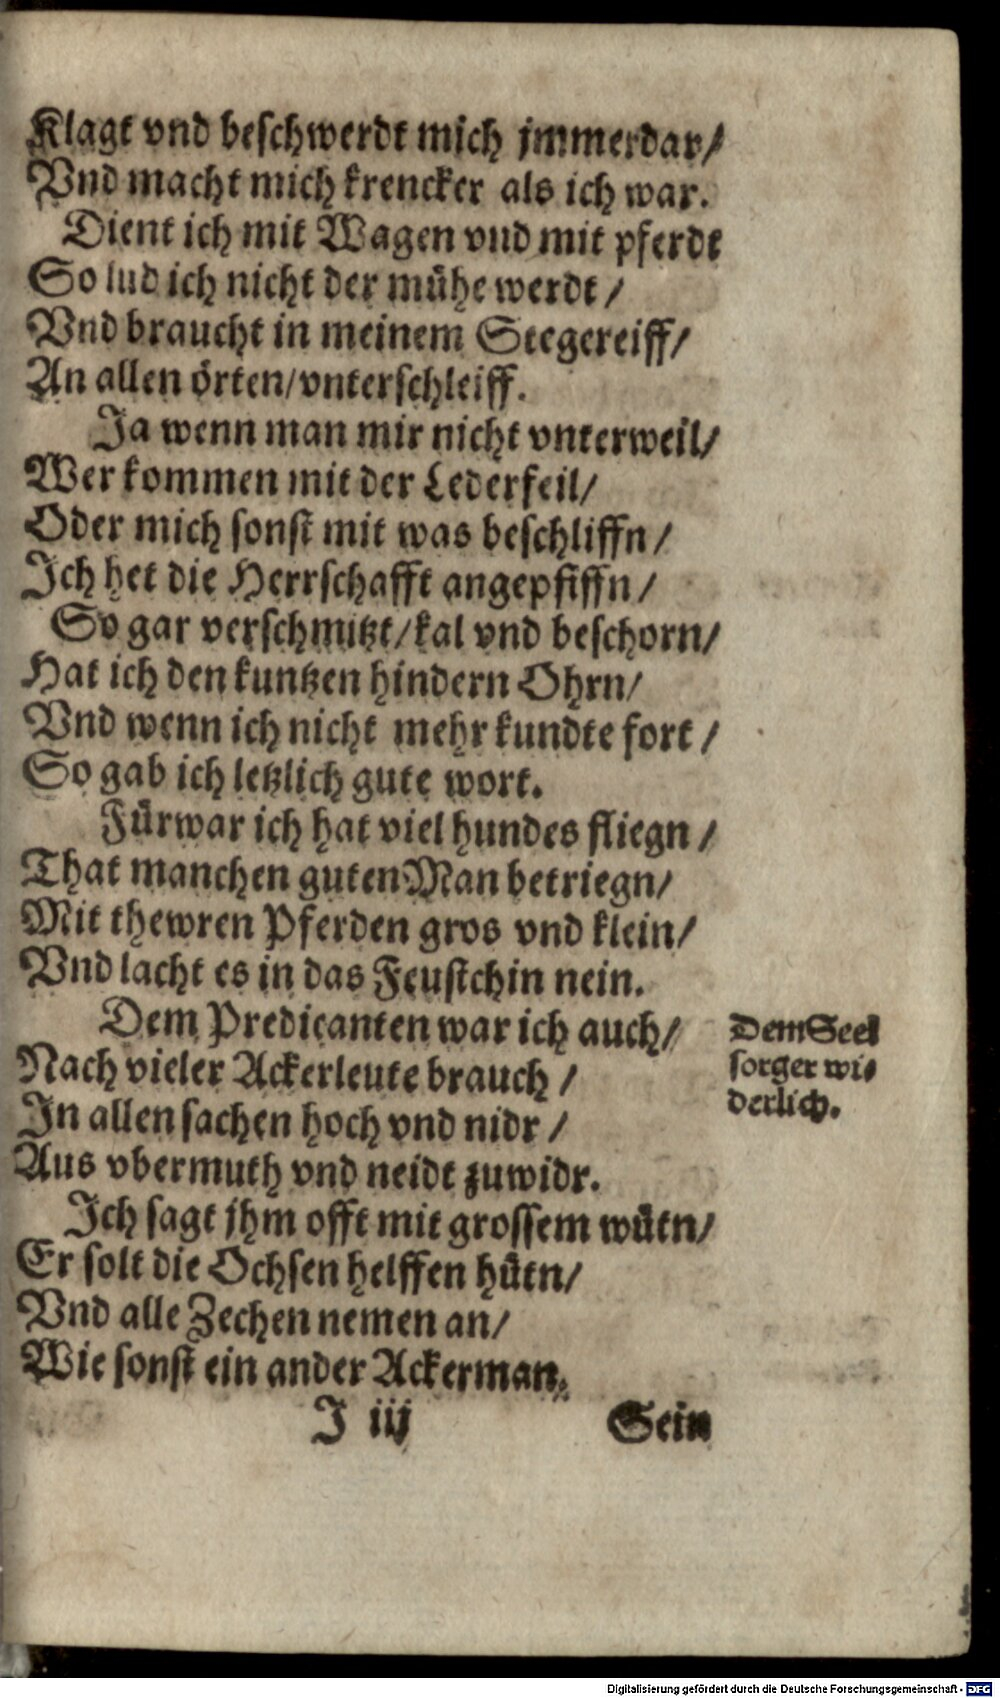 Klagt vnd beschwerdt mich jmmerdar/
Vnd macht mich krencker als ich war.
Dient ich mit Wagen vnd mit pferdt
So lud ich nicht der mühe werdt /
Vnd braucht in meinem Stegereiff/
An allen örten/vnterschleiff.
Ja wenn man mir nicht vnterweil/
Wer kommen mit der Lederfeil/
Oder mich sonst mit was beschliffn /
Ich het die Herrschafft angepfiffn /
So gar verschmitzt/kal vnd beschorn/
Hat ich den kuntzen hindern Ohrn/
Vnd wenn ich nicht mehr kundte fort /
So gab ich letzlich gute wort.
Fürwar ich hat viel hundes fliegn /
That manchen guten Man betriegn/
Mit thewren Pferden gros vnd klein/
Vnd lacht es in das Feustchin nein.
Dem Predicanten war ich auch/
Nach vieler Ackerleute brauch /
In allen sachen hoch vnd nidr /
Aus vbermuth vnd neidt zuwidr.
Ich sagt jhm offt mit grossem wütn/
Er solt die Ochsen helffen hütn/
Vnd alle Zechen nemen an/
Wie sonst ein ander Ackerman.
Dem Seel
sorger wi-
derlich.
J iij
Sein
Digitalisierung gefördert durch die Deutsche Forschungsgemeinschaft - DFG